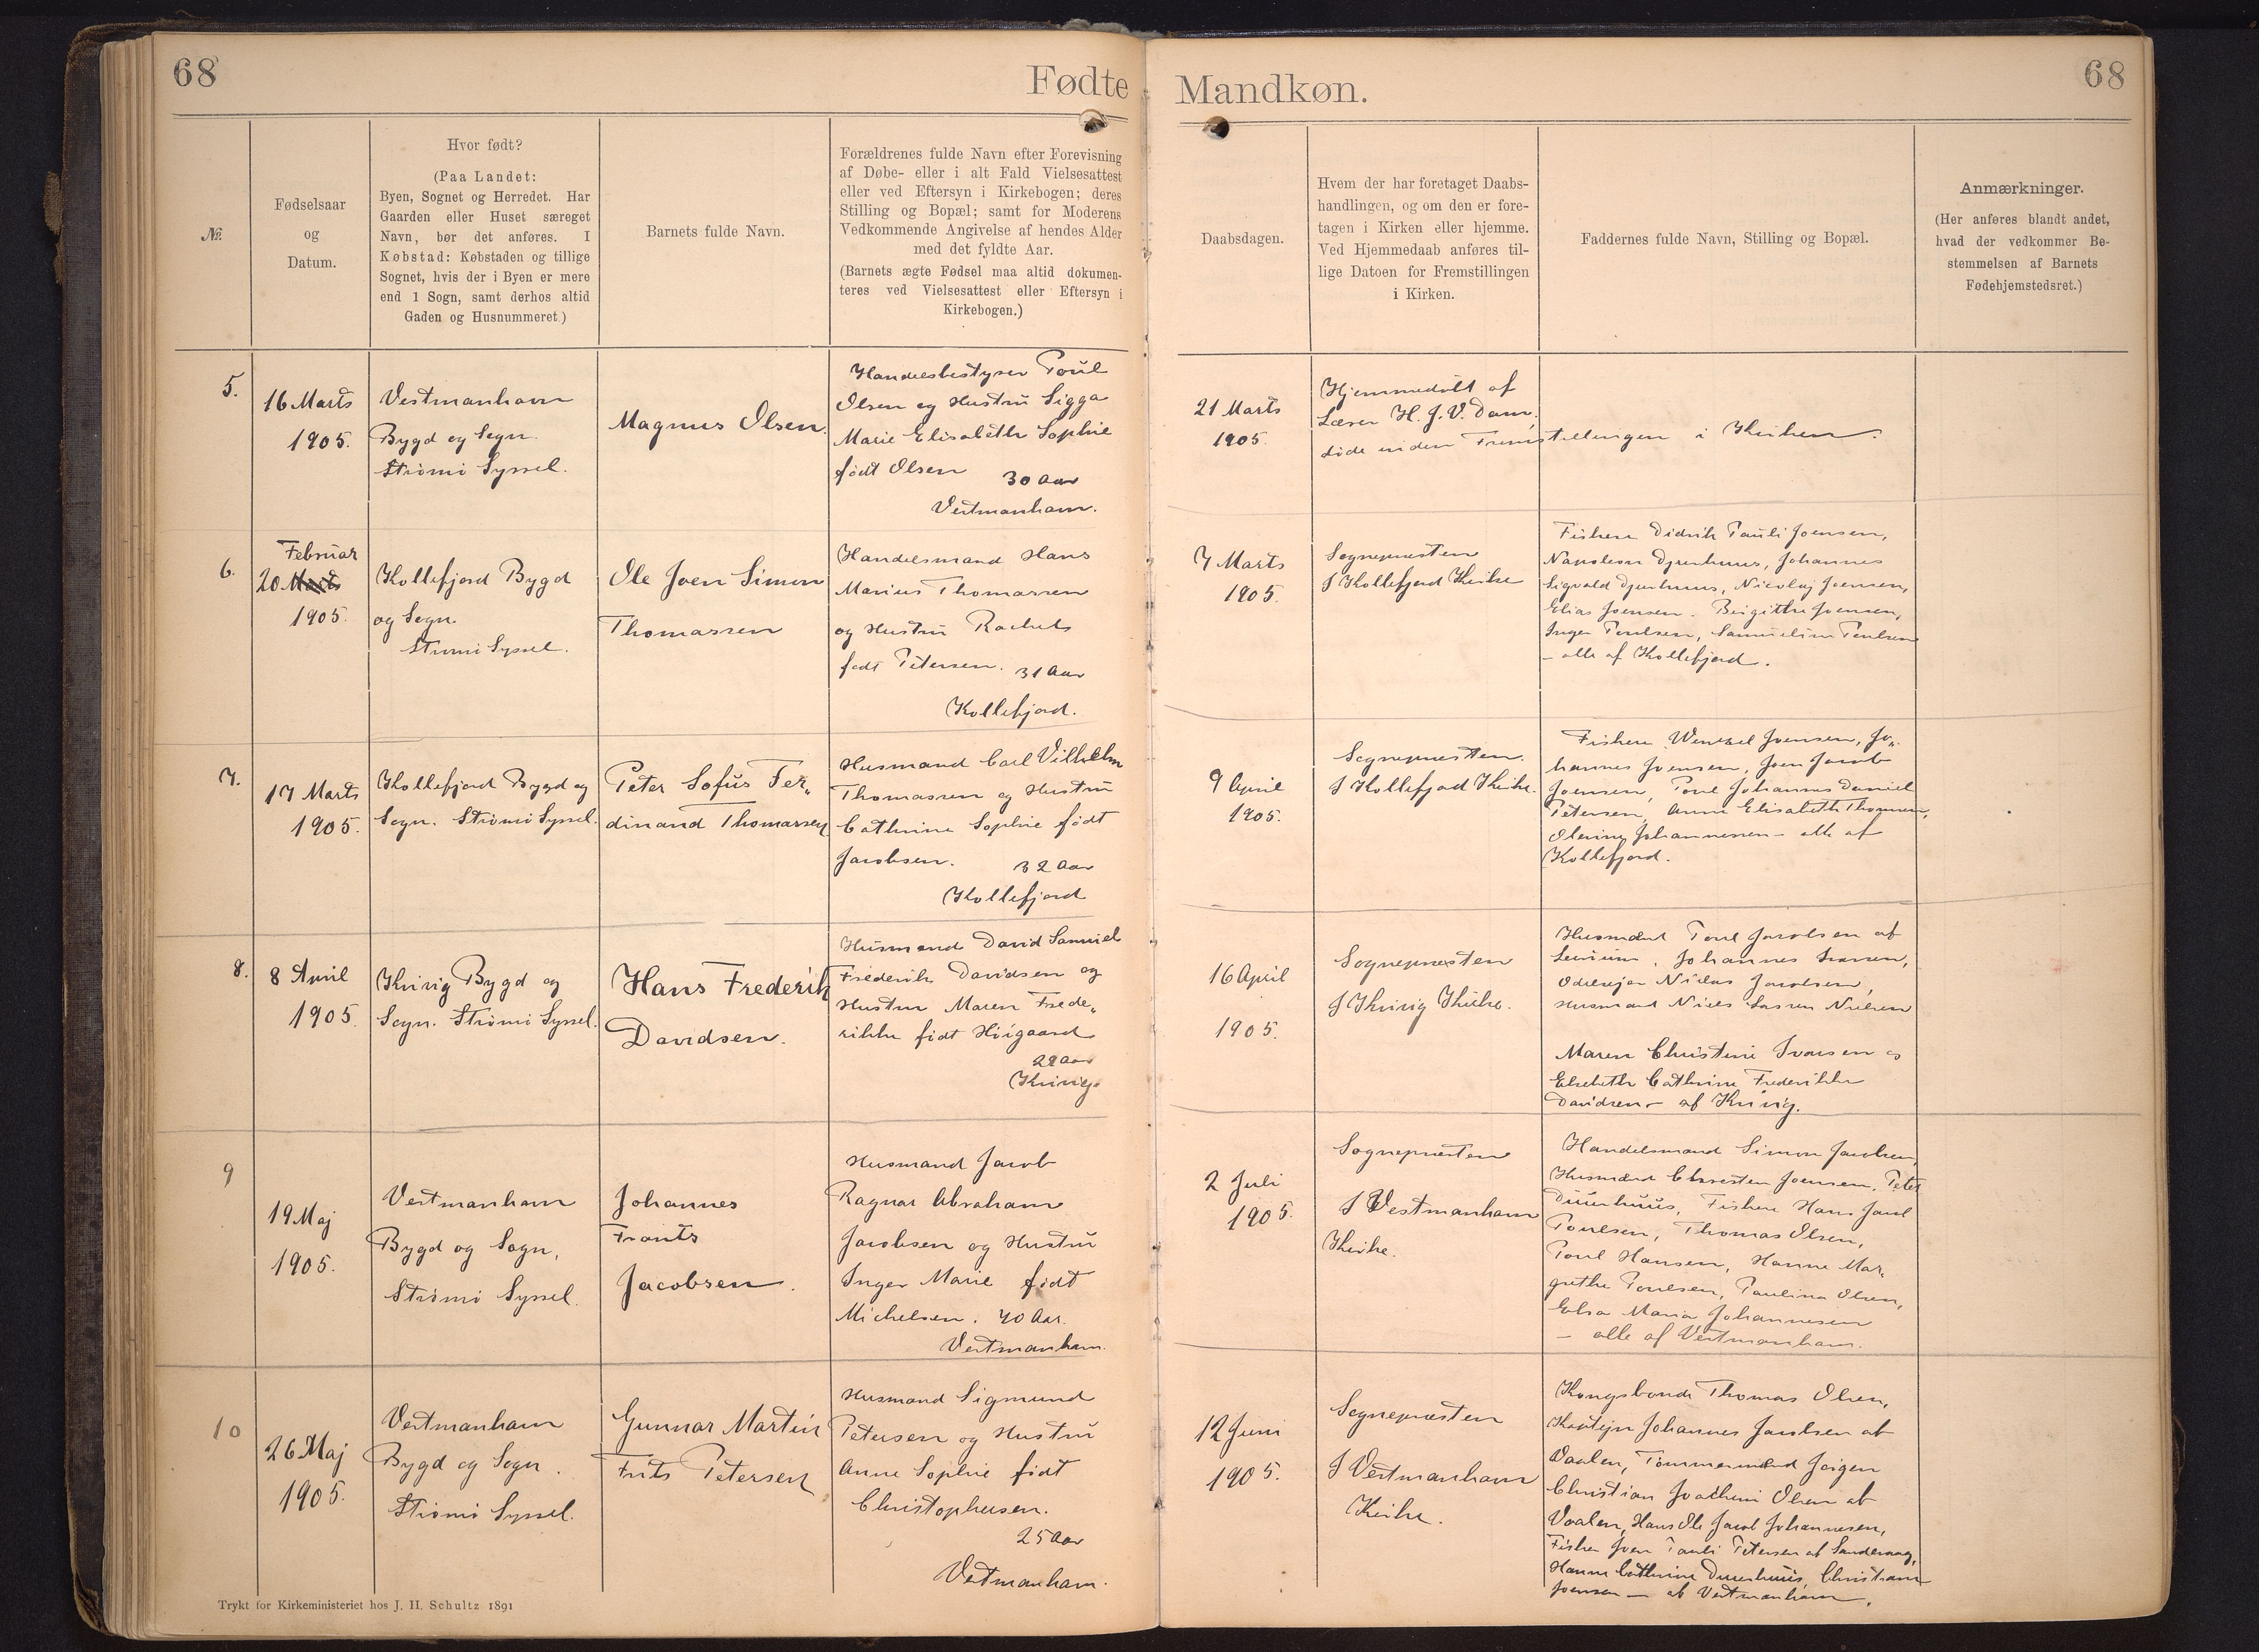 68
Fødte
Mandkøn.
68
№.
Fødselsaar
og
Datum.
Hvor født?
(Paa Landet:
Byen, Sognet og Herredet. Har
Gaarden eller Huset særeget
Navn, bør det anføres. I
Købstad: Købstaden og tillige
Sognet, hvis der i Byen er mere
end 1 Sogn, samt derhos altid
Gaden og Husnummeret.)
Barnets fulde Navn.
Forældrenes fulde Navn efter Forevisning
af Døbe- eller i alt Fald Vielsesattest
eller ved Eftersyn i Kirkebogen; deres
Stilling og Bopæl; samt for Moderens
Vedkommende Angivelse af hendes Alder
med det fyldte Aar.
(Barnets ægte Fødsel maa altid dokumen-
teres ved Vielsesattest eller Eftersyn i
Kirkebogen.)
Daabsdagen.
Hvem der har foretaget Daabs-
handlingen, og om den er fore-
tagen i Kirken eller hjemme.
Ved Hjemmedaab anføres til-
lige Datoen for Fremstillingen
i Kirken.
Faddernes fulde Navn, Stilling og Bopæl.
Anmærkninger.
(Her anføres blandt andet,
hvad der vedkommer Be-
stemmelsen af Barnets
Fødehjemstedsret.)
5.
16 Marts
1905.
Vestmanhavn
Bygd og Sogn.
Strömö Syssel.
Magnus Olsen.
Handelsbestyrer Poul
Olsen og Hustru Sigga
Marie Elisabeth Sophie
født Olsen
30 Aar
Vestmanhavn.
21 Marts
1905.
Hjemmedöbt af
Lærer H. J. V. Dam,
döde inden Fremstillingen i Kirken.
6.
Februar
20 Marts
1905.
Kollefjord Bygd
og Sogn.
Strömö Syssel.
Ole Joen Simon
Thomassen
Handelsmand Hans
Marius Thomassen
og Hustru Rachel
født Petersen. 31 Aar
Kollefjord.
7 Marts
1905.
Sognepræsten
I Kollefjord Kirke
Fisker Didrik Pauli Joensen,
Napoleon Djurhuus, Johannes
Sigvald Djurhuus, Nicolaj Joensen,
Elias Joensen. Birgithe Joensen,
Inger Poulsen, Samueline Poulsen
– alle af Kollefjord.
7.
17 Marts
1905.
Kollefjord Bygd og
Sogn. Strömö Syssel.
Peter Sofus Fer„
dinand Thomassen
Husmand Carl Vilhelm
Thomassen og Hustru
Cathrine Sophie født
Jacobsen. 32 Aar
Kollefjord
9 April
1905.
Sognepræsten.
I Kollefjord Kirke.
Fisker Wenzel Joensen, Jo„
hannes Joensen, Joen Jacob
Joensen, Poul Johannes Daniel
Petersen, Anne Elisabeth Thomsen,
Johannesen – alle af
Kollefjord.
8.
8 April
1905.
Kvivig Bygd og
Sogn. Strömö Syssel.
Hans Frederik
Davidsen.
Husmand David Samuel
Frederik Davidsen og
Hustru Maren Frede„
rikke født Höigaard
29 Aar
Kvivig.
16 April
1905.
Sognepræsten
I Kvivig Kirke.
Husmænd Poul Jacobsen af
Johannes
Niclas Jacobsen,
Husmand Niels Nielsen
Maren Christine Ivarsen og
Elsebeth Cathrine Frederikke
Davidsen – af Kvivig.
9
19 Maj
1905.
Vestmanhavn
Bygd og Sogn,
Strömö Syssel.
Johannes
Frants
Jacobsen.
Husmand Jacob
Ragnar Abraham
Jacobsen og Hustru
Inger Marie født
Michelsen. 40 Aar.
Vestmanhavn.
2 Juli
1905.
Sognepræsten
I Vestmanhavn
Kirke.
Handelsmand Simon Jacobsen,
Husmænd Christen Joensen, Peter
Duurhuus, Fisker Hans Jacob
Poulsen, Thomas Olsen,
Poul Hansen, Hanne Mar„
grethe Poulsen, Paulina Olsen,
Elsa Maria Johannesen
– alle af Vestmanhavn.
10
26 Maj
1905.
Vestmanhavn
Bygd og Sogn.
Strömö Syssel.
Gunnar Martin
Frits Petersen
Husmand Sigmund
Petersen og Hustru
Anne Sophie født
Christophersen.
25 Aar
Vestmanhavn.
12 Juni
1905.
Sognepræsten
I Vestmanhavn
Kirke.
Kongsbonde Thomas Olsen,
Johannes Jacobsen af
Vaalen, Tømmermand Jørgen
Christian Joachim Olsen af
Vaalen, Hans Ole Jacob Johannesen,
Fisker Joen Pauli Petersen af
Hanne Cathrine Duurhuus, Christiane
Joensen – af Vestmanhavn.
Trykt for Kirkeministeriet hos J. H. Schultz 1891